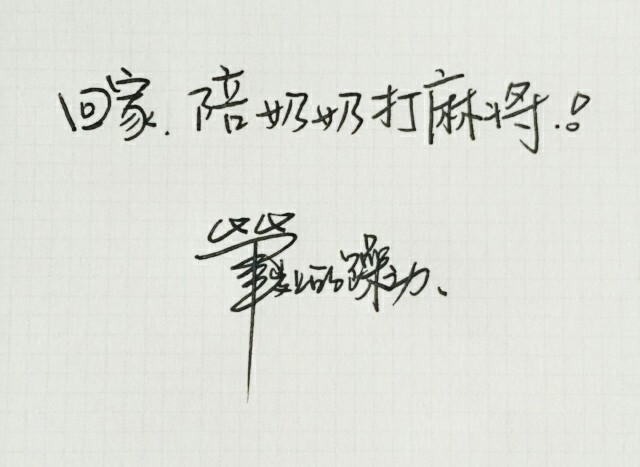 回家.陪奶奶打麻将.!
笔上的躁动、